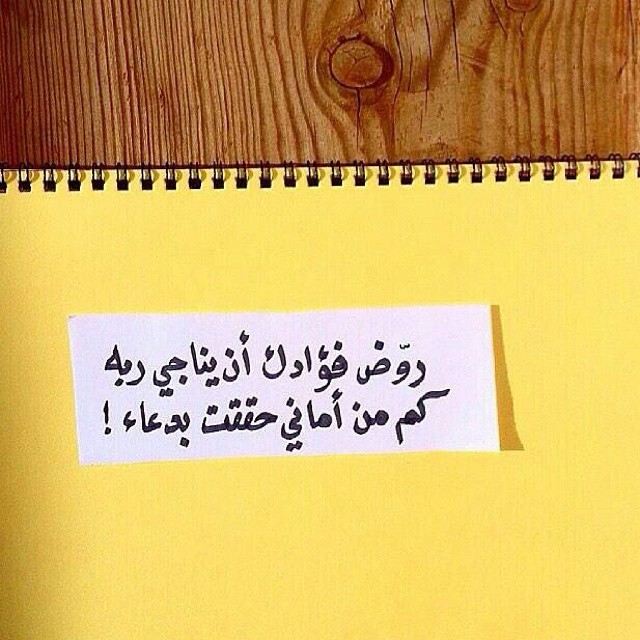 روّض فؤادك أن يناجي ربه
كم من أماني حققت بدعاء !